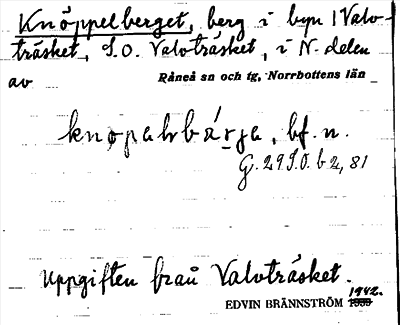 Knöppelberget, berg i byn Valv-
träsket, S.O. Valvträsket, i N. delen
av Råneå sn och tg, Norrbottens län
knǫpahbá̱rja, bf. n.
G. 29 S.O. b 2, 81
Uppgiften från Valvträsket.
1942.
EDVIN BRÄNNSTRÖM 1939